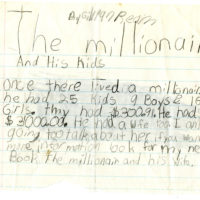 The millionair
And His Kids
Once there lived a millionair
he had 25 Kids 9 Boys & 16
Girls. thay had $300.00 He had
$3,000,000. He had a wife too I am not
going to talk about her if you want
more information look for my new
Book The millionair and his wife.